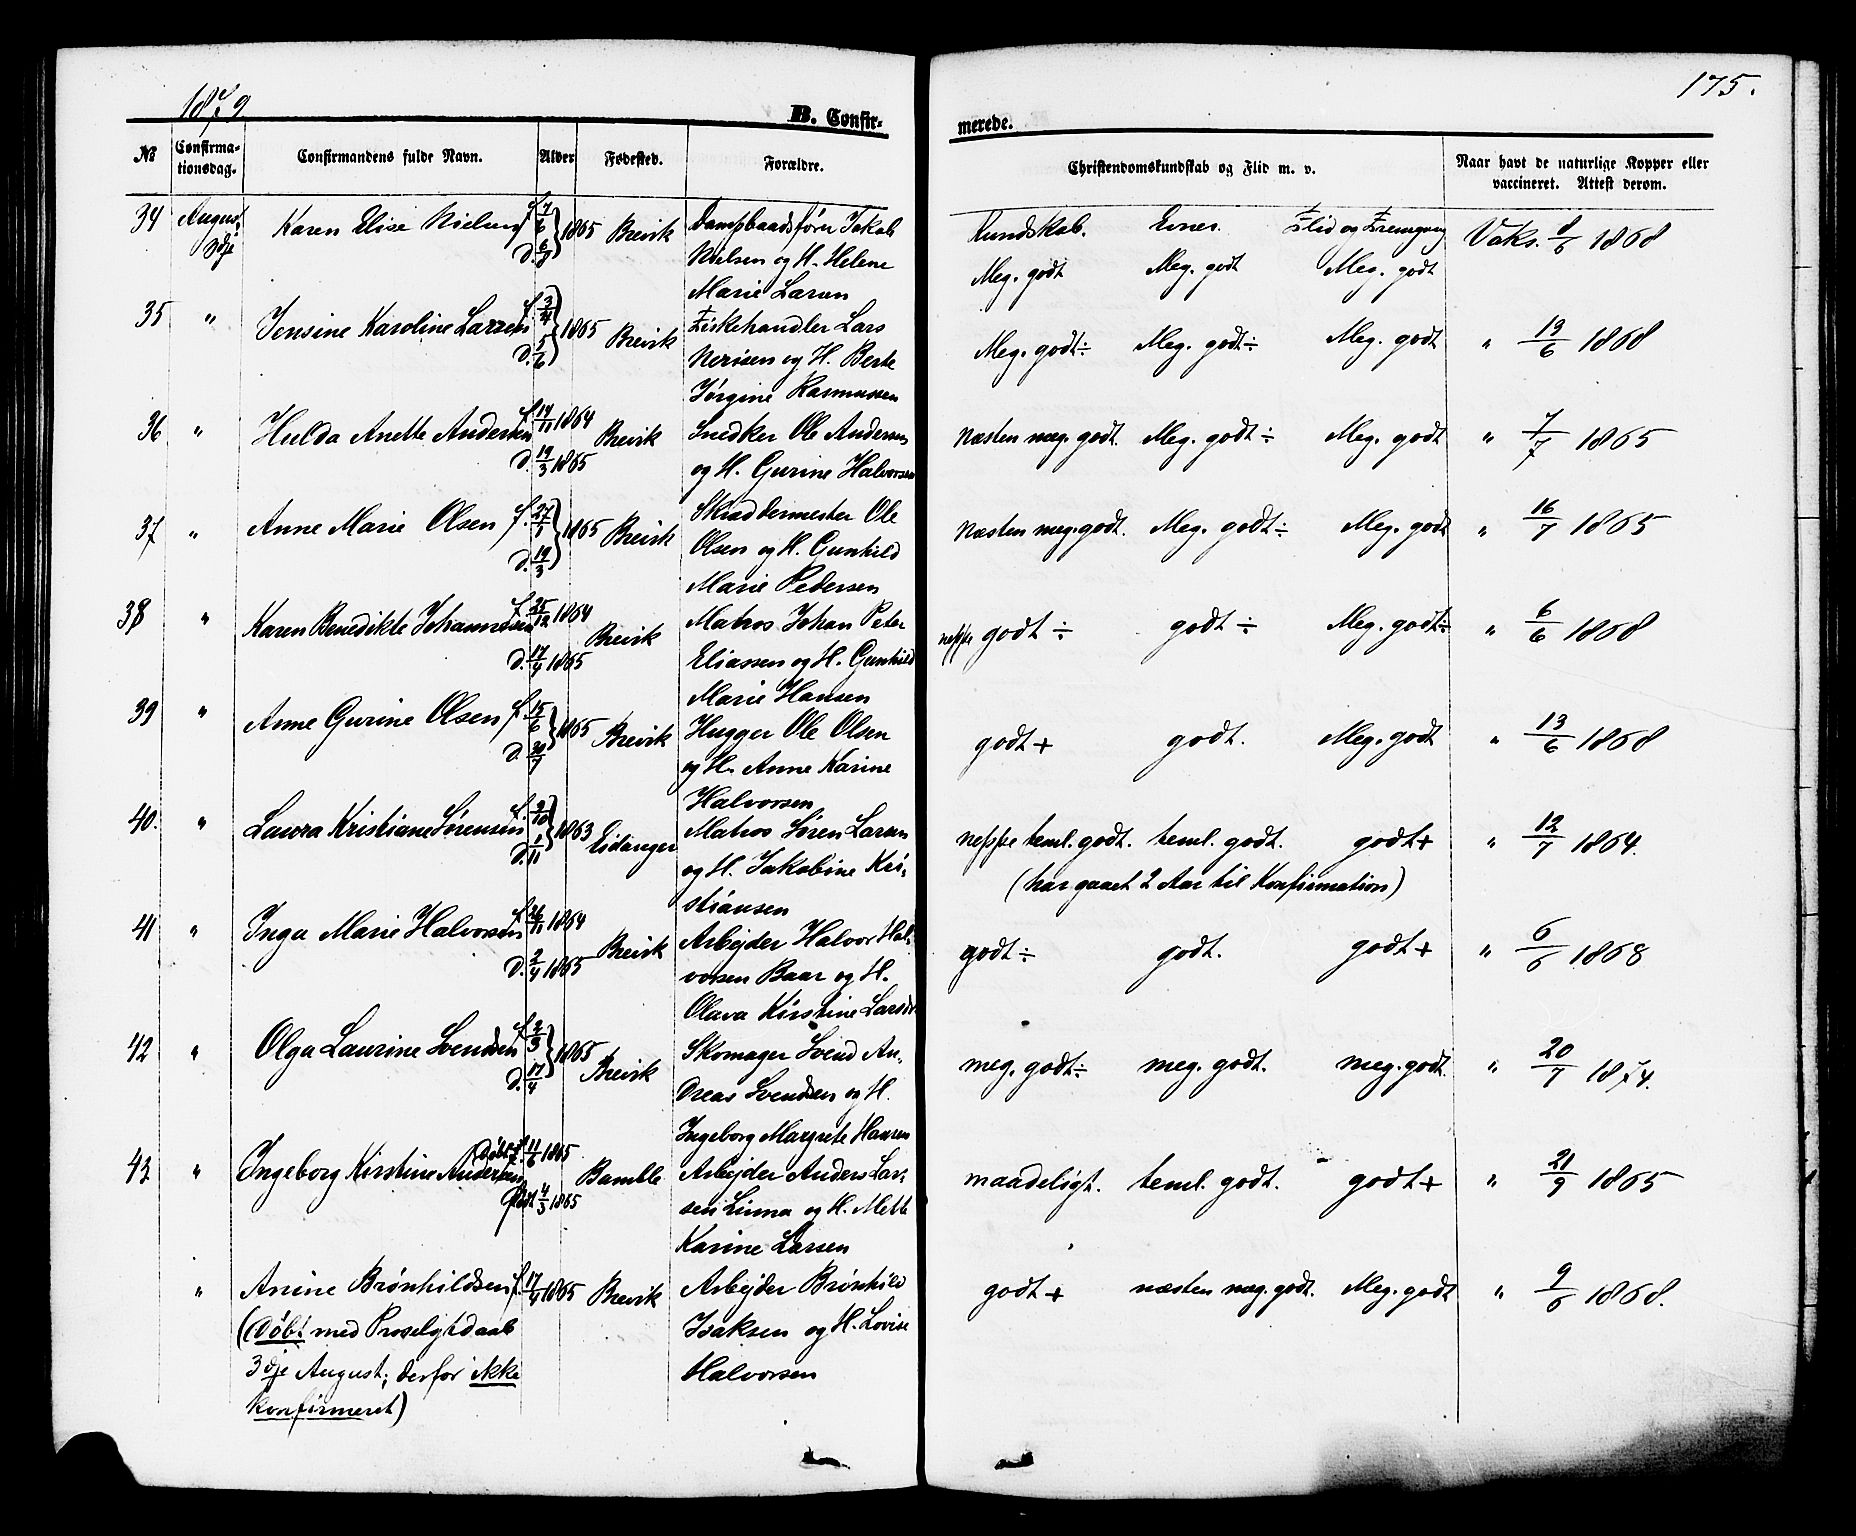 1879
175.
B. Confir-
merede.
No
Confirma-
tionsdag.
Confirmandens fulde Navn.
Alder
Fødested.
Forældre.
Christendomskundskab og Flid m. v.
Naar havt de naturlige Kopper eller
vaccineret. Attest derom.
Kundskab. Evner. Flid og Fremgang
34 August 3dje Karen Elise Nielsen f. 7/6 d. 1865 Brevik Dampbaadsfører Jakob
Nielsen og H. Helene
Marie Larsen
Meg. godt Meg. godt Meg. godt Vaks. 1868
35 " Jensine Karoline Larsen f. 3/4 d. 5/6 1865 Brevik Fiskehandler Lars
Nerisen og H. Berte
Jørgine Rasmussen
Meg. godt÷ Meg. godt÷ Meg. godt " 13/6 1868
36 " Hulda Anette Andersen f. 14/11 1864 d. 19/3 1865 Brevik Snedker Ole Andersen
og H. Gurine Halvorsen
Næsten meg. godt. Meg. godt÷ Meg. godt " 7/7 1865
37 " Anne Marie Olsen f. 27/1 d. 19/3 1865 Brevik Skræddermester Ole
Olsen og H. Gunhild
Marie Pedersen
Næsten meg. godt. Meg. godt÷ Meg. godt " 16/7 1865
38 " Karen Benedikte Johannesen f. 25/12 1864 d. 17/4 1865 Brevik Matros Johan Peter
Eliassen og H. Gunhild
Marie Hansen
neppe godt ÷ godt ÷ Meg. godt÷ " 6/6 1868
39 " Anne Gurine Olsen f. 15/6 d. 30/7 1865 Brevik Hugger Ole Olsen
og H. Anne Karine
Halvorsen
godt + godt. Meg. godt " 13/6 1868
40. " Laura Kristiane Sørensen f. 2/10 d. 1/11 1863 Eidanger Matros Søren Larsen
og H. Jakobine Kri-
stiansen
neppe teml. godt. teml. godt. godt+ " 12/7 1864.
(har gaaet 2 Aar til Konfirmation)
41 " Inga Marie Halvorsen f. 26/11 1864 d. 2/4 1865 Brevik Arbejder Halvor Hal-
vorsen Baar og H.
Olava Kirstine Larsdr
godt÷ godt. godt+ " 6/6 1868
42 " Olga Laurine Svendsen f. 2/3 d. 17/4 1865 Brevik Skomager Svend An-
dreas Svendsen og H.
Ingeborg Margrete Hansen
meg. godt÷ meg. godt. meg. godt. " 20/7 1874.
43 " Ingeborg Kirstine Andersen Døbt 11/6 1865 Født 4/3 1865 Bamble Arbejder Anders Lar-
sen Linna og H. Mette
Karine Larsen
maadeligt. teml. godt. godt+ " 21/9 1865
" Anine Brønhildsen f. 17/4 1865 Brevik Arbejder Brønhild
Isaksen og H. Lovise
Halvorsen
(Døbt med Proselytdaab
3dje August; derfor ikke
konfirmeret)
godt + næsten meg. godt. Meg. godt " 9/6 1868.